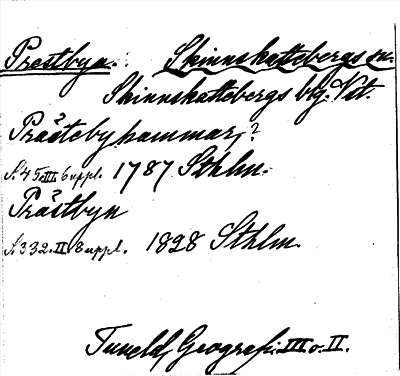 Prestbyn. Skinnskattebergs sn.
Skinnskattebergs blg. Vst.
Prästebyhammar,?
S. 45. III. 6 uppl. 1787 Sthlm.
Prästbyn
S. 332. II. 8 uppl. 1828 Sthlm.
Tuneld, Geografi. III o. II.